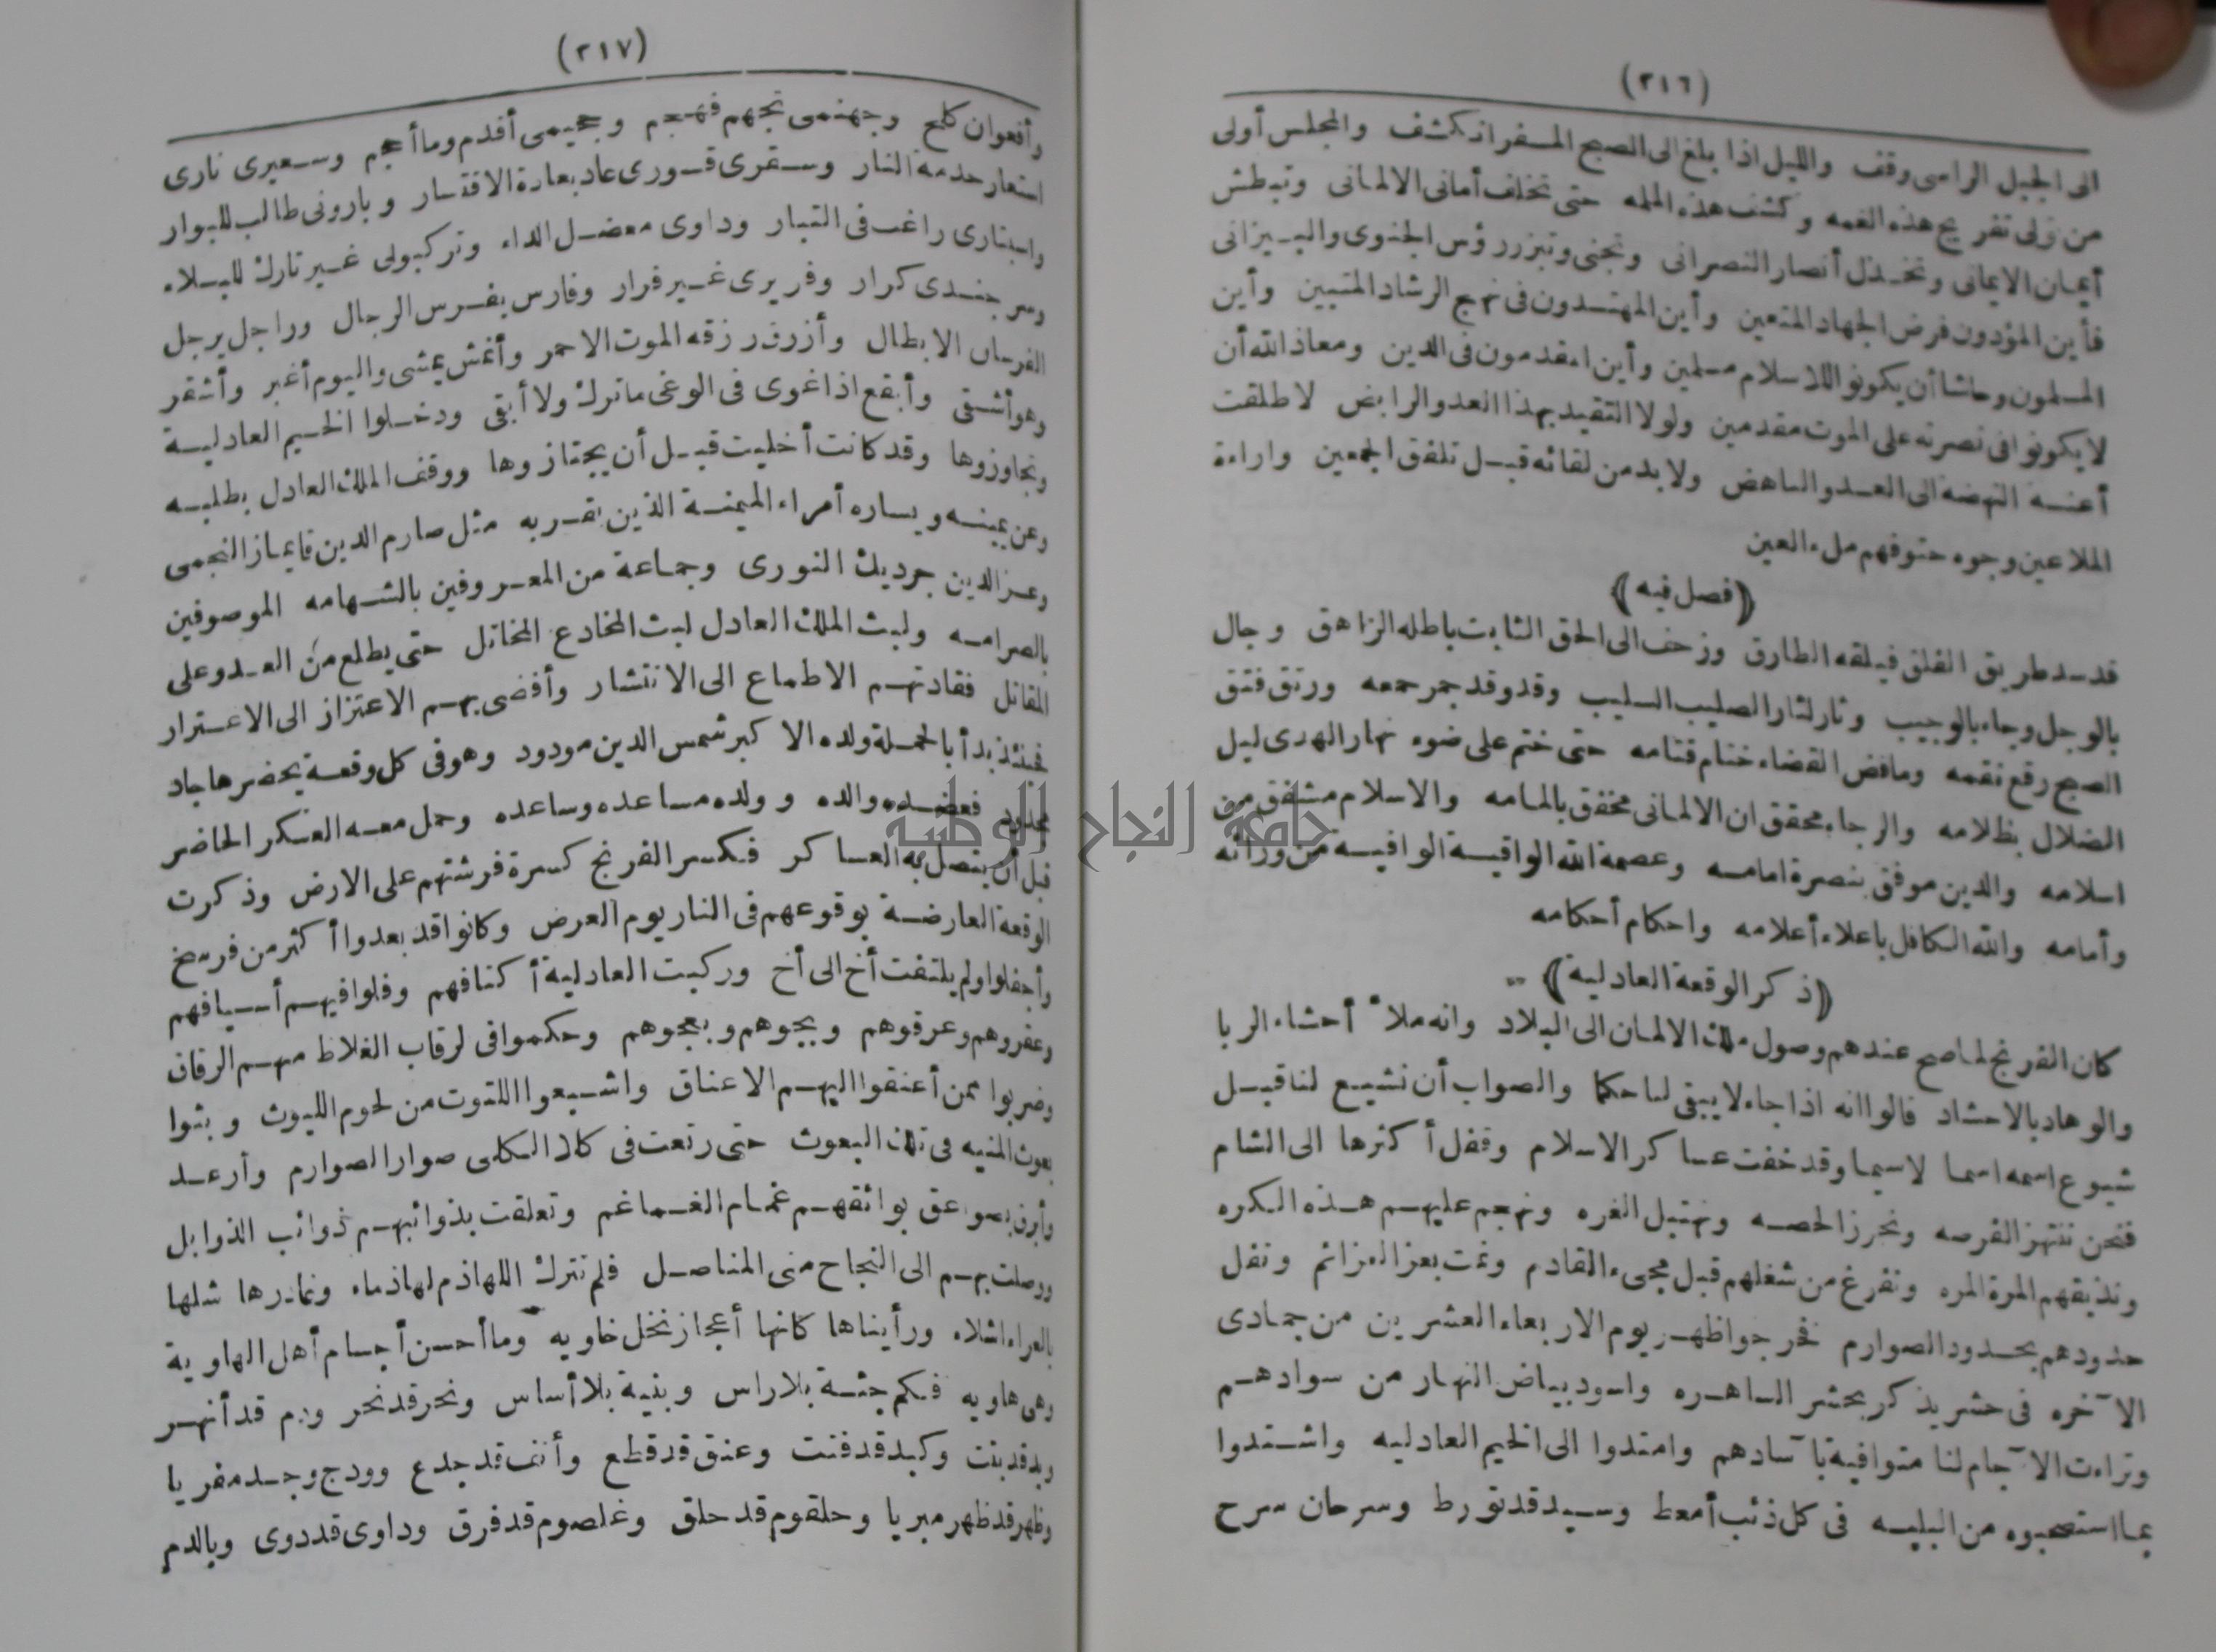 (٢١٦)
الى الجبل الراسى وقف والليل اذا بلغ الى الصبح المسفر انكشف والمجلس أولى
من ولى تفريج هذه الغمه وكشف هذه الملمه حتى تخلف أمانى الالمانى وتبطش
أيمان الايمانى وتخذل أنصار النصرانى وتجنى وتبزر رؤس الجنوى والبيزانى
فأين المؤدون فرض الجهاد المتعين وأين المهتدون فى نهج الرشاد المتبين وأين
المسلمون وحاشا أن يكونوا للاسلام مسلمين وأين المقدمون فى الدين ومعاذ الله أن
لا يكونوا فى نصرته على الموت مقدمين ولولا التقيد بهذا العدو الرابض لاطلقت
أعنـه النهضه الى العـدو الناهض ولا بد من لقائه قبـل تلفق الجمعين واراءة
الملاعين وجوه حتوفهم ملء العين
(فصل فيه)
قد سد طريق الفلق فيلقه الطارق وزحف الى الحق الثابت باطله الزاهق وجال
بالوجل وجاء بالوجيب وثار لثار الصليب السليب وقد وقد جمر جمعه ورتق فتق
الصبح رقع نقعه ومافض القضاء ختام قتامه حتى ختم على ضوء نهار الهدى ليل
الضلال بظلامه والرجاء محقق ان الالمانى مخفق بالمامه والاسلام مشفق من
اسلامه والدين موفق بنصرة امامـه وعصمة الله الواقيـة الوافيـة من ورائه
وأمامه والله الكافل باعلاء أعلامه واحكام أحكامه
(ذكر الوقعة العادلية)
كان الفرنج لما صح عندهم وصول ملك الالمان الى البلاد وانه ملأ أحشاء الربا
والوهاد بالاحشاد قالوا انه اذا جاء لا يبقى لنا حكما والصواب أن نشيـع لنا قبـل
شيوع اسمه اسما لاسيما وقد خفت عساكر الاسلام وقفل أكثرها الى الشام
فنحن ننتهز الفرصه ونحرز الحصـه ونهتبل الغره ونهجم عليهـم هـذه الكره
ونذيقهم المرة المره ونفرغ من شغلهم قبل مجىء القادم ونمت بعز العزائم ونفل
حدودهم بحـدود الصوارم فخرجوا ظهـر يوم الاربعاء العشرين من جمادى
الآخره فى حشر يذكر بحشر الساهـره واسود بياض النهار من سوادهـم
وتراءت الآجام لنا متوافية بآسادهم وامتدوا الى الخيم العادليه واشـتدوا
بما استصحبوه من البليـه فى كل ذئب أمعط وسـيد قد تورط وسرحان سرح
(٢١٧)
وأفعوان كلح وجهنمى تجهم فهجم وجحيمى أقدم وما أحجم وسـعيرى نارى
استعار حدمة النار وسـقرى قـسورى عاد بعادة الاقتسار وبارونى طالب للبوار
واسبتارى راغب فى التبار وداوى معضـل الداء وتركبولى غـير تارك للبـلاء
وسرجنـدى كرار وفريرى غـير فرار وفارس يفـرس الرجال وراجل يرجل
الفرسان الابطال وأزرق رزقه الموت الاحمر وأغش يمشى واليوم أغبر وأشقر
وهو أشقى وأبقع اذا غوى فى الوغى ما ترك ولا أبقى ودخـلوا الخيـم العادليـة
وتجاوزوها وقد كانت أخليت قبـل أن يجتازوها ووقف الملك العادل بطلبـه
وعن يمينـه ويساره أمراء الميمنـة الذين بقـربه مثـل صارم الدين قايماز النجمى
وعـز الدين جرديك النورى وجماعة من المعـروفين بالشـهامه الموصوفين
بالصرامـه ولبث الملك العادل لبث المخادع المخاتل حتى يطلع من العـدو على
المقاتل فقادتهـم الاطماع الى الانتشار وأفضى بهـم الاعتزاز الى الاغـترار
فحينئذ بدأ بالحمـلة ولده الاكبر شمس الدين مودود وهو فى كل وقعـة يحضرها جاد
مجدود فعضـده والده وولده مساعده وساعده وحمل معـه العسكر الحاضر
قبل أن يتصل به العساكر فكسر الفرنج كسرة فرشتهم على الارض وذكرت
الوقعة العارضـة بوقوعهم فى النار يوم العرض وكانوا قد بعدوا أكثر من فرسخ
وأجفلوا ولم يلتفت أخ الى أخ وركبت العادلية أكتافهم وفلوا فيهـم أسـيافهم
وعقروهم وعرقوهم وبجوهم وبعجوهم وحكموا فى لرقاب الغلاظ منهـم الرقاق
وضربوا ممن أعنقوا اليهـم الاعناق واشـبعوا اللتوت من لحوم الليوث وبثوا
بعوث المنيه فى تلك البعوث حتى رتعت فى كلا الكلى صوار الصوارم وأرعـد
وأبرق بصواعق بوائقهـم غمام الغـماغم وتعلقت بذوائبهـم ذوائب الذوابل
ووصلت بهـم الى النجاح منى المناصـل فلم تترك اللهاذم لهاذماء ونمادرها شلها
بالعراء اشلاء ورأيناها كانها أعجاز نخل خاويه وما أحسن أجسام أهل الهاوية
وهى هاويه فكم جثـة بلا راس وبنية بلا أساس ونحر قد نحر ودم قد أنهـر
ويد قد بتت وكبد قد فتت وعنق قد قطع وأنف قد جدع وودج وجـد مفريا
وظهر قد ظهر مبريا وحلقوم قد حلق وغلصوم قد فرق وداوى قد دوى وبالدم
جامعة النجاح الوطنية